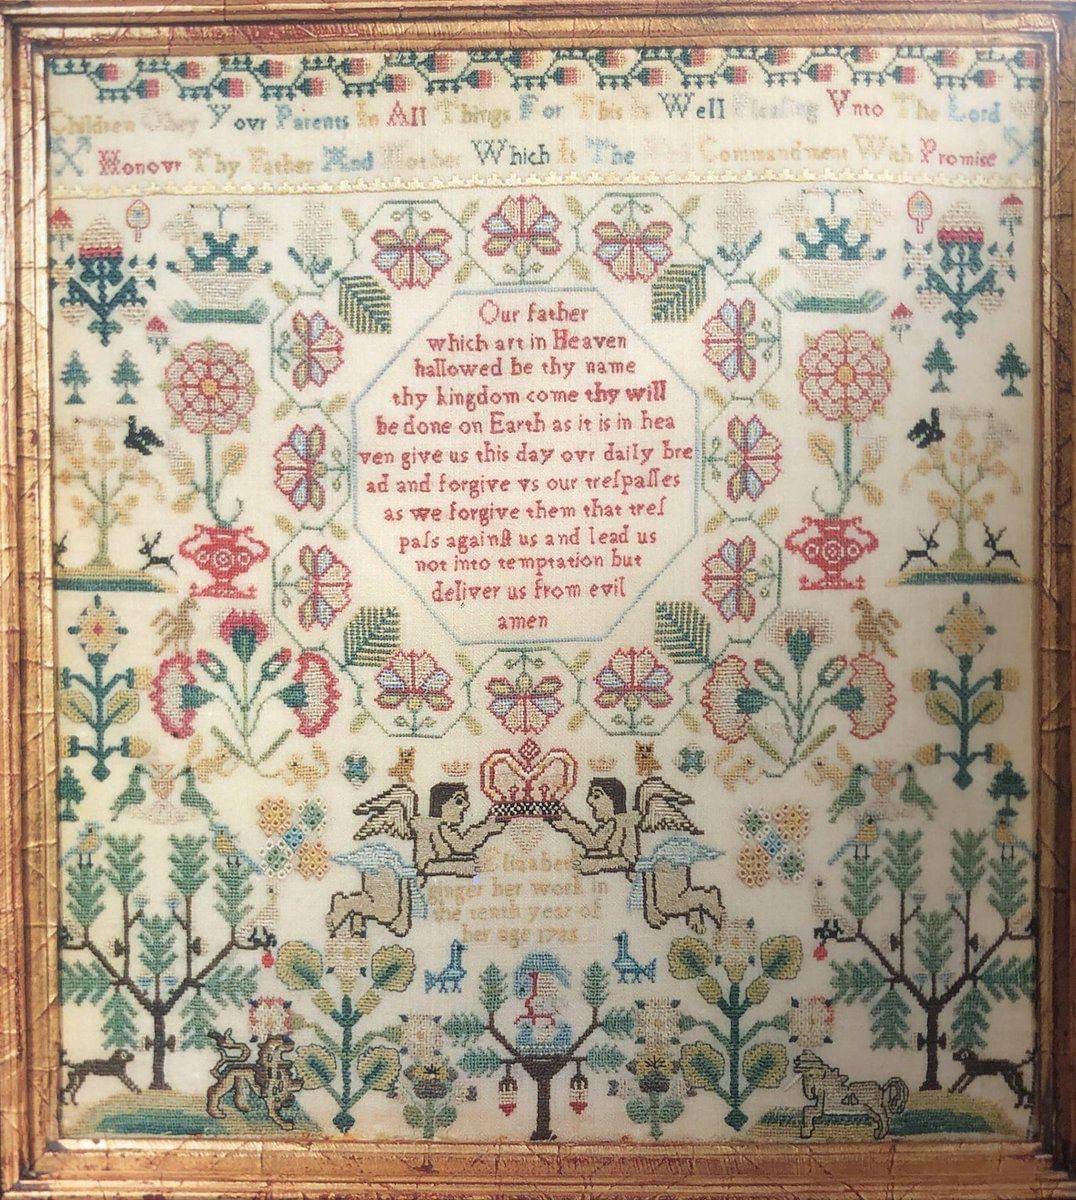 Children Obey Yovr Parents In All Things For This Is Well Pleasing Vnto The Lord
Honovr Thy Father And Mother Which Is The Commandment With Promise
Our father
which art in Heaven
hallowed be thy name
thy kingdom come thy will
be done on Earth as it is in hea
ven give us this day ovr daily bre
ad and forgive vs our treſpaſſes
as we forgive them that treſ
paſs againſt us and lead us
not into temptation but
deliver us from evil
amen
Elizabeth
ginger her work in
the tenth year of
her age